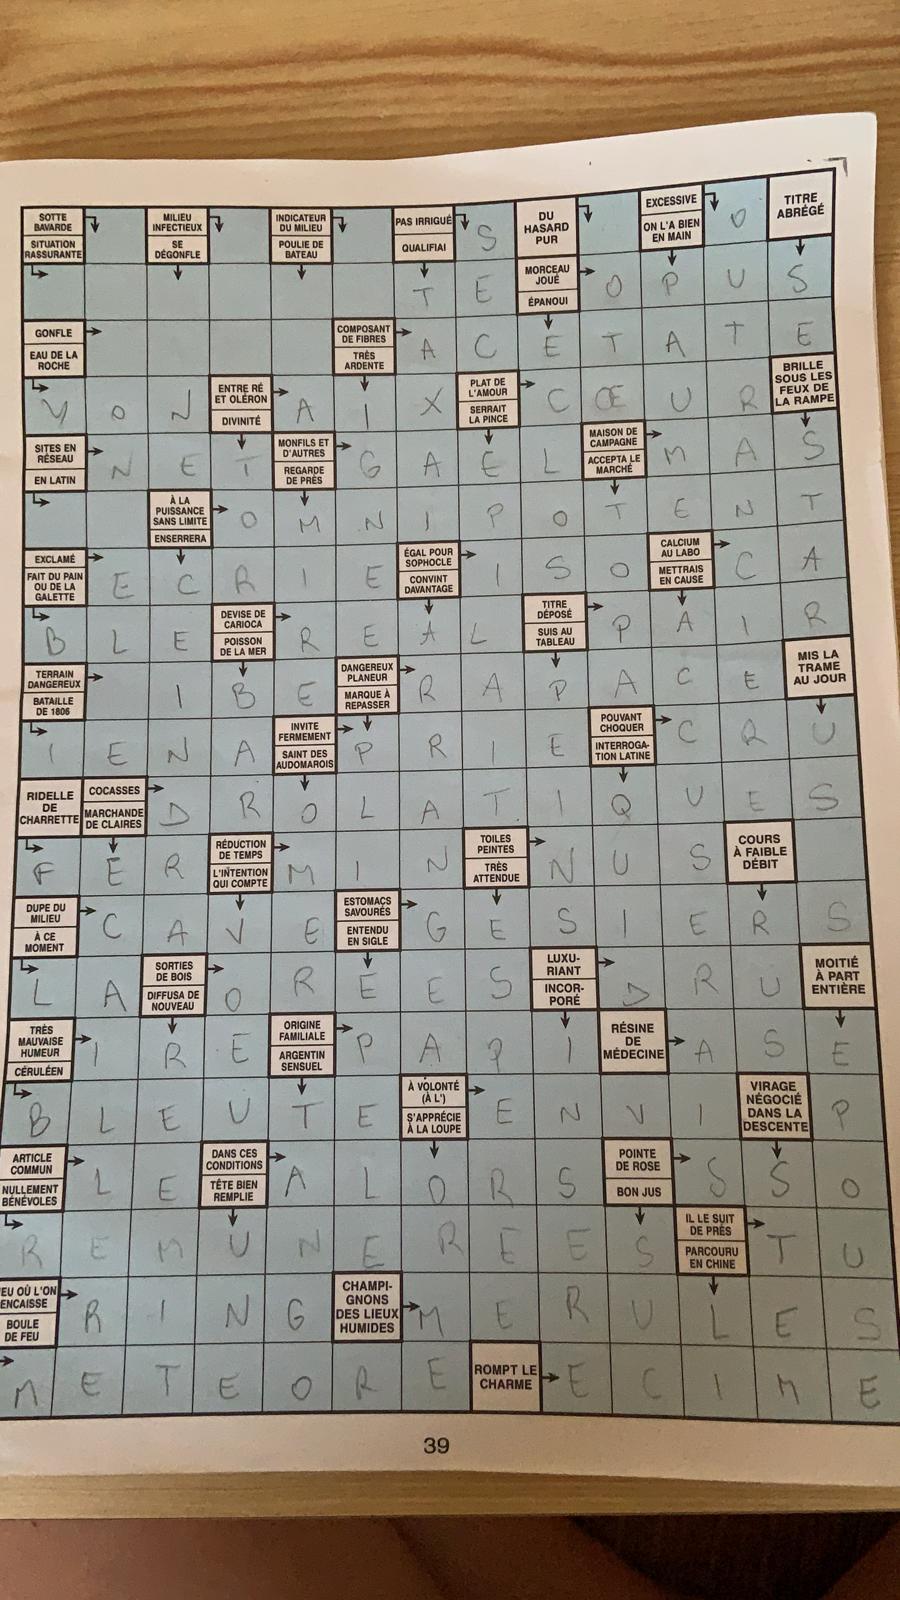 SOTTE BAVARDE SITUATION RASSURANTE MILIEU INFECTIEUX SE DÉGONFLE INDICATEUR DU MILIEU POULIE DE BATEAU PAS IRRIGUÉ QUALIFIAI S DU HASARD PUR EXCESSIVE ON L'A BIEN EN MAIN O TITRE ABRÉGÉ
T E MORCEAU JOUÉ ÉPANOUI O P U S
GONFLE EAU DE LA ROCHE COMPOSANT DE FIBRES TRÈS ARDENTE A C E T A T E
Y O N ENTRE RÉ ET OLÉRON DIVINITÉ A I X PLAT DE L'AMOUR SERRAIT LA PINCE C Œ U R BRILLE SOUS LES FEUX DE LA RAMPE
SITES EN RÉSEAU EN LATIN N E T MONFILS ET D'AUTRES REGARDE DE PRÈS G A E L MAISON DE CAMPAGNE ACCEPTA LE MARCHÉ M A S
À LA PUISSANCE SANS LIMITE ENSERRERA O M N I P O T E N T
EXCLAMÉ FAIT DU PAIN OU DE LA GALETTE E C R I E ÉGAL POUR SOPHOCLE CONVINT DAVANTAGE I S O CALCIUM AU LABO METTRAIS EN CAUSE C A
B L E DEVISE DE CARIOCA POISSON DE LA MER R E A L TITRE DÉPOSÉ SUIS AU TABLEAU P A I R
TERRAIN DANGEREUX BATAILLE DE 1806 I B E DANGEREUX PLANEUR MARQUE À REPASSER R A P A C E MIS LA TRAME AU JOUR
I E N A INVITE FERMEMENT SAINT DES AUDOMAROIS P R I E POUVANT CHOQUER INTERROGATION LATINE C R U
RIDELLE DE CHARRETTE COCASSES MARCHANDE DE CLAIRES D R O L A T I Q U E S
F E R RÉDUCTION DE TEMPS L'INTENTION QUI COMPTE M I N TOILES PEINTES TRÈS ATTENDUE N U S COURS À FAIBLE DÉBIT
DUPE DU MILIEU À CE MOMENT C A V E ESTOMACS SAVOURÉS ENTENDU EN SIGLE G E S I E R S
L A SORTIES DE BOIS DIFFUSA DE NOUVEAU O R E E S LUXURIANT INCORPORÉ D R U MOITIÉ À PART ENTIÈRE
TRÈS MAUVAISE HUMEUR CÉRULÉEN I R E ORIGINE FAMILIALE ARGENTIN SENSUEL P A P I RÉSINE DE MÉDECINE A S E
B L E U T E À VOLONTÉ (À L') S'APPRÉCIE À LA LOUPE E N V I VIRAGE NÉGOCIÉ DANS LA DESCENTE P
ARTICLE COMMUN NULLEMENT BÉNÉVOLES L E DANS CES CONDITIONS TÊTE BIEN REMPLIE A L O R S POINTE DE ROSE BON JUS S S O
R E M U N E R E E S IL LE SUIT DE PRÈS PARCOURU EN CHINE T U
EU OÙ L'ON ENCAISSE BOULE DE FEU R I N G CHAMPIGNONS DES LIEUX HUMIDES M E R U L E S
M E T E O R E ROMPT LE CHARME E C I M E
39